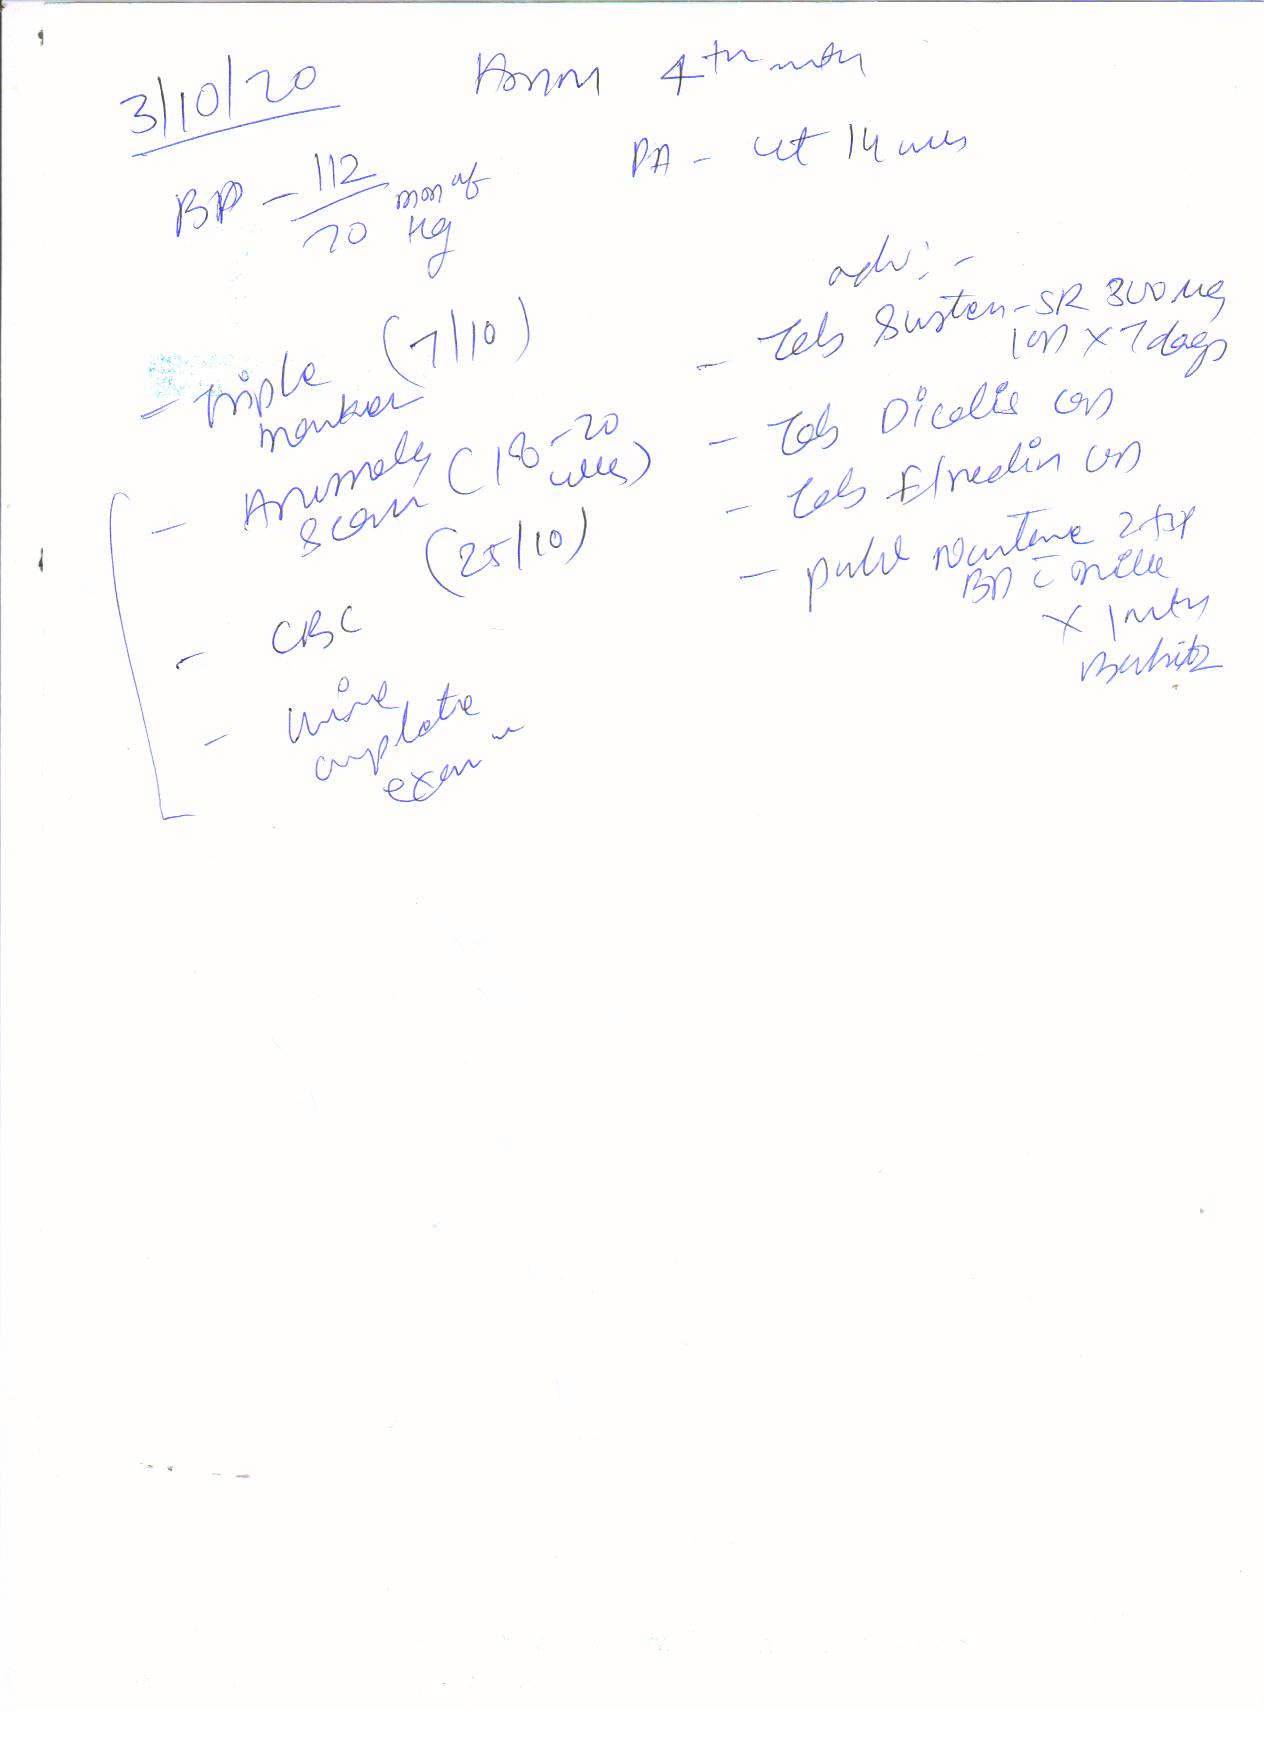 3/10/20
4th mth
PA - ut 14 wks
BP - 112/70 mm of
Hg
adv: -
- Triple (7/10)
marker
- Anomaly
scan (18-20
wks)
(25/10)
- CBC
- urine
complete
exam
- Tab Susten-SR 300 mg
1 OD x 7 days
- Tab OD
- Tab OD
2 tsf
BD c milk
x 1 mth